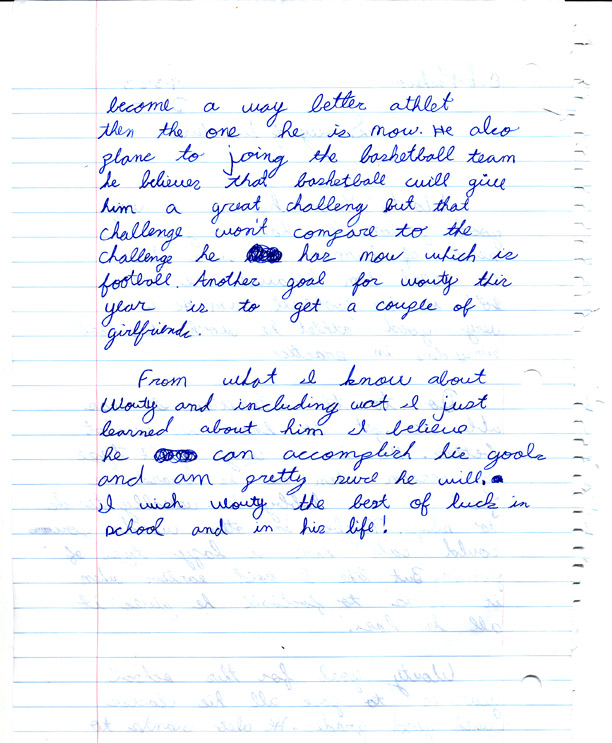 become a way better athlet
then the one he is now. He also
plans to joing the basketball team
he believes that basketball will give
him a great challeng but that
challenge won't compare to the
challenge he has now which is
football. Another goal for wouty this
year is to get a couple of
girlfriends.
From what I know about
Wouty and including wat I just
learned about him I believe
he can accomplish his goals
and am pretty sure he will.
I wish Wouty the best of luck in
school and in his life!